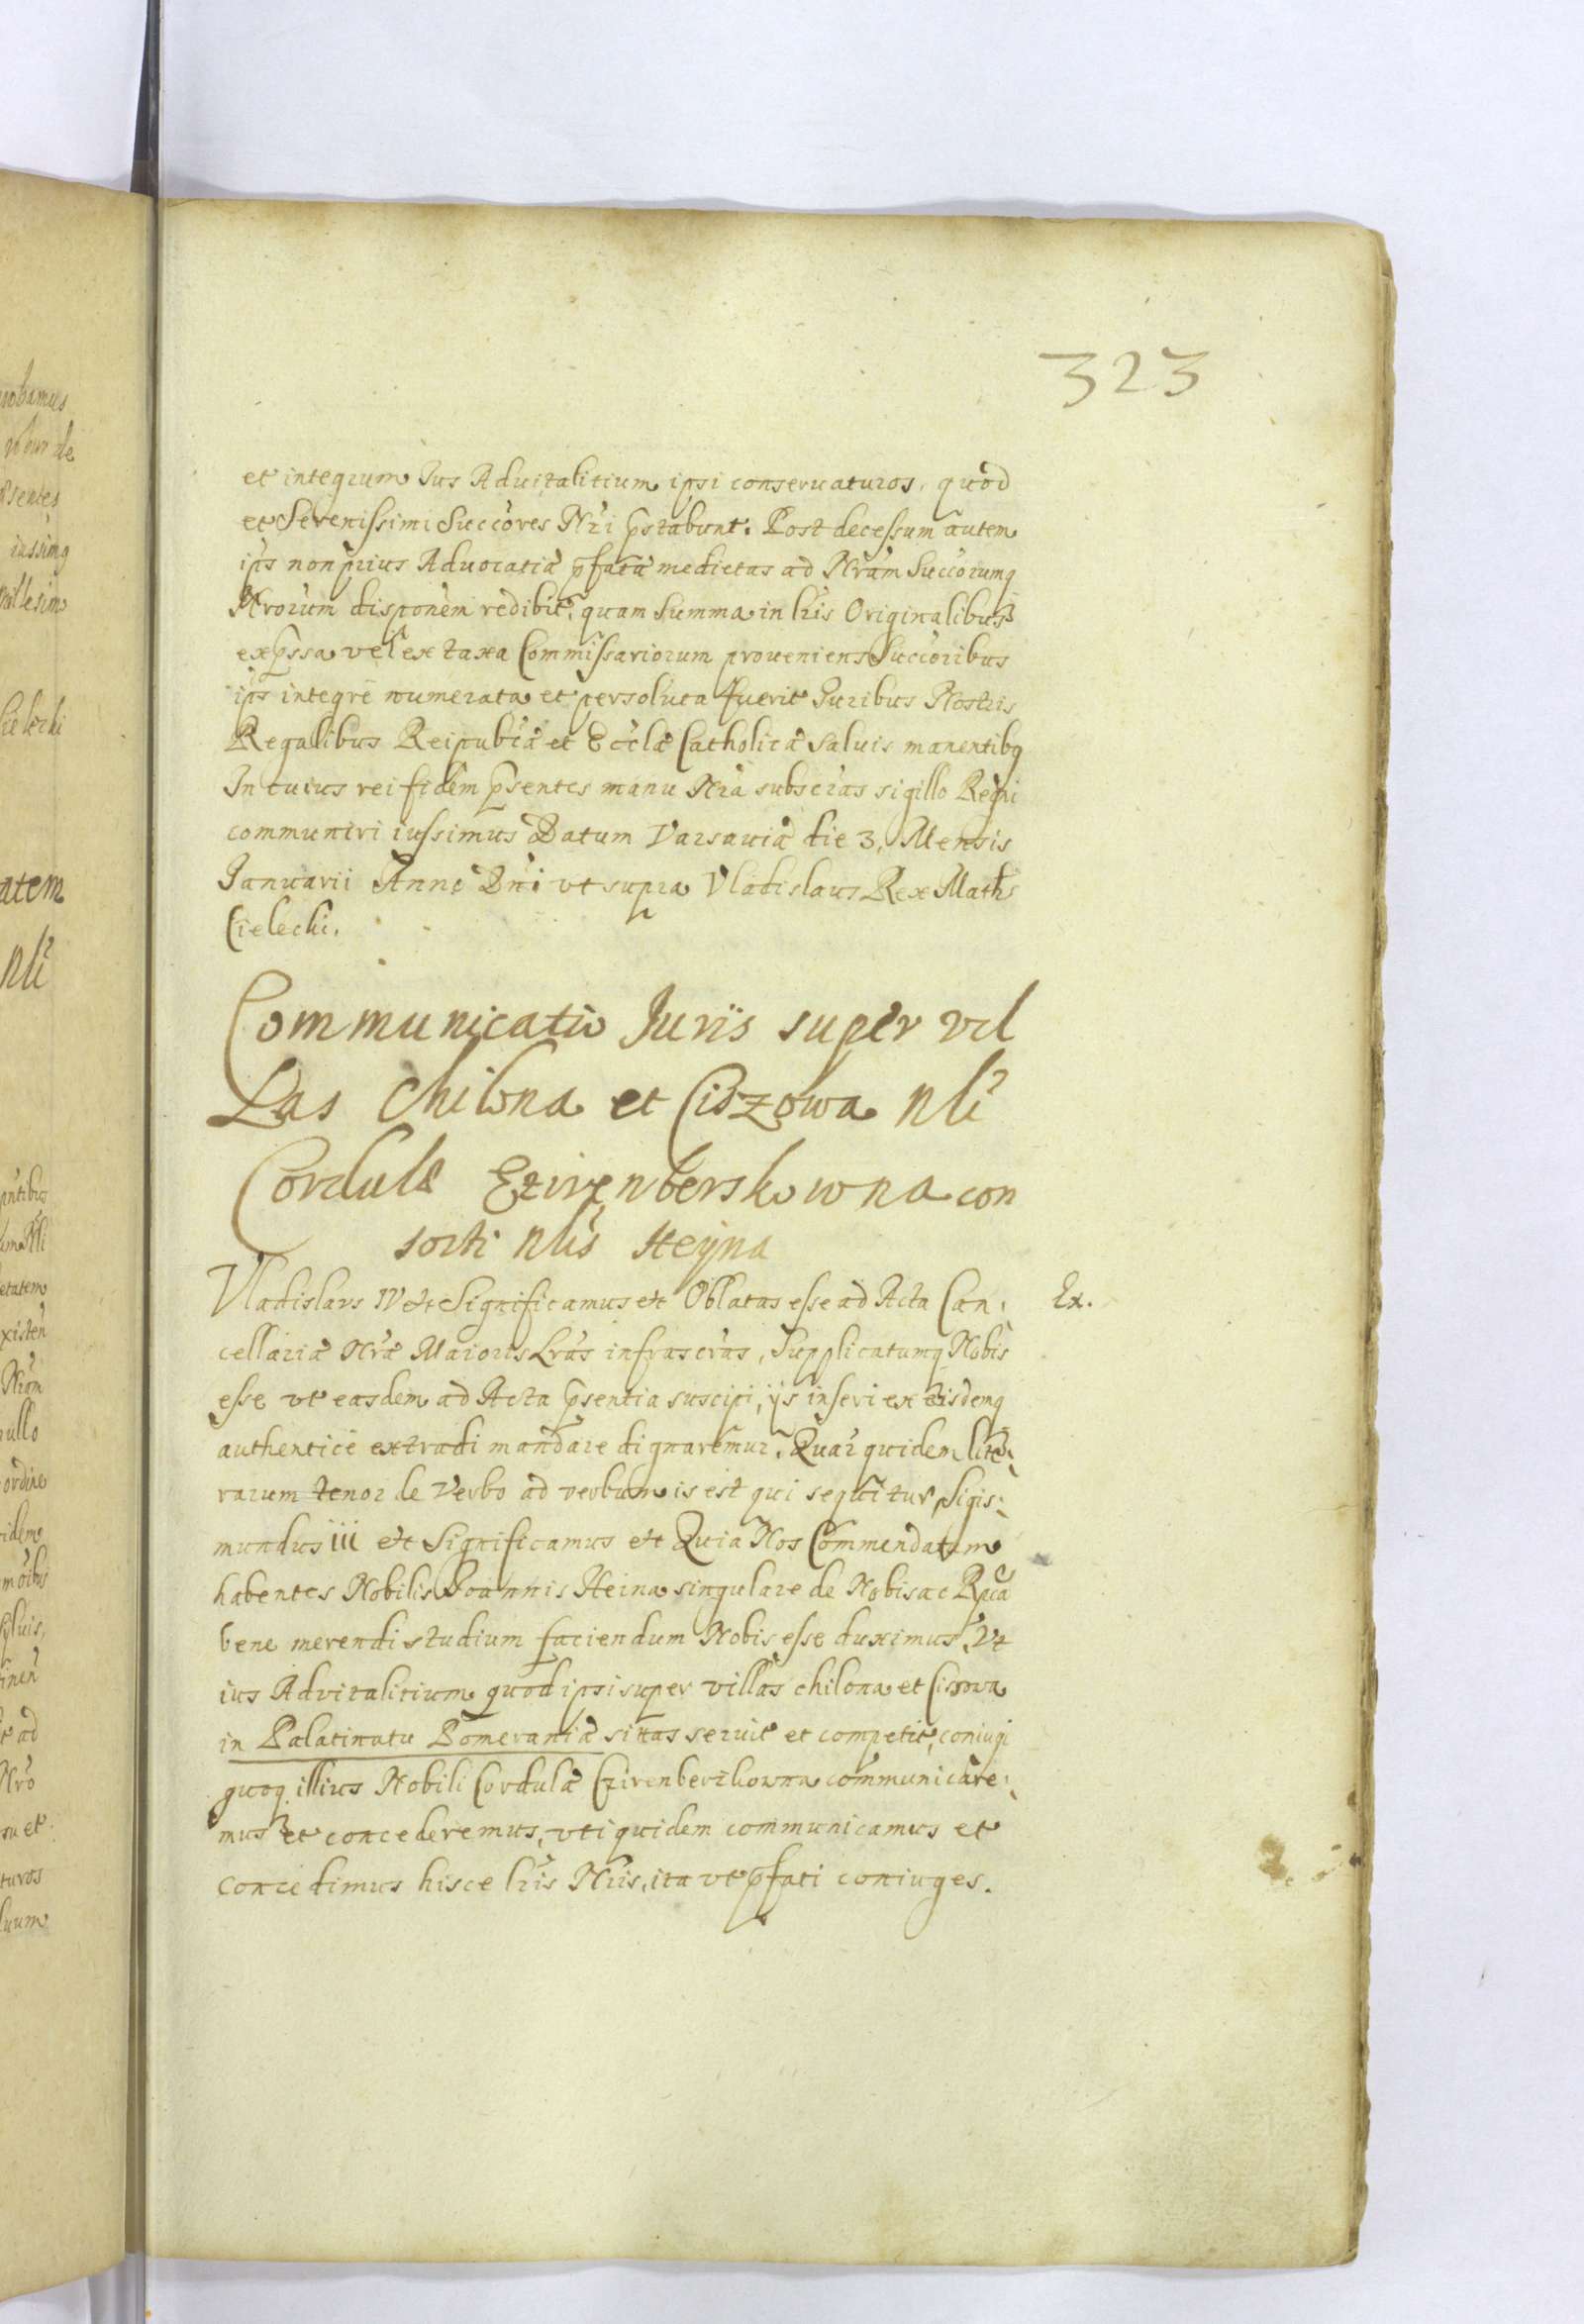 323
et integrum Ius Advitalitium ipsi conservaturos, quod
et Serenissimi Succores Nri pstabunt. Post decessum autem
ips non prius Advocatiæ pfatæ medietas ad Nram Succorumq
Nrorum disponem redibit, quam Summa in lris Originalibus
expssa vel ex taxa Commissariorum proveniens Succoribus
ips integre numerata et persoluta fuerit Iuribus Nostris
Regalibus Reipublæ et Ecclæ Catholicæ salvis manentibq
In cuius rei fidem psentes manu Nra subscras sigillo Regni
communiri iussimus Datum Varsaviæ die 3, Mensis
Ianuarii Anno Dni ut supra Vladislaus Rex Maths
Cielecki.
Communicatio Iuris super vil
Las Chilona et Ciszowa Nli
Cordulæ Czirenberskowna con
sorti Nlis Heyna
Vladislaus IV etc Significamus etc Oblatas esse ad Acta Can:
Ex.
cellariæ Nræ Maioris Lras infrascras, Supplicatumq Nobis
esse ut easdem ad Acta psentia suscipi, iis inseri ex Eisdemq
authentice extradi mandare dignaremur. Quar quidem lite:
rarum tenor de Verbo ad verbum is est qui sequitur, Sigis:
mundus iii etc Significamus etc Quia Nos Commendatum
habentes Nobilis Joannis Heina singulare de Nobis ac Rpca
bene merendi studium faciendum Nobis esse duximus, Ut
ius Advitalitium quod ipsi super villas chilona et Cissowa
in Palatinatu Pomeraniæ sittas servit et competit, coniugi
quoq illius Nobili Cordulæ Czirenberzkowna communicare:
mus et concederemus, uti quidem communicamus et
concedimus hisce lris Nris, ita ut pfati coniuges.